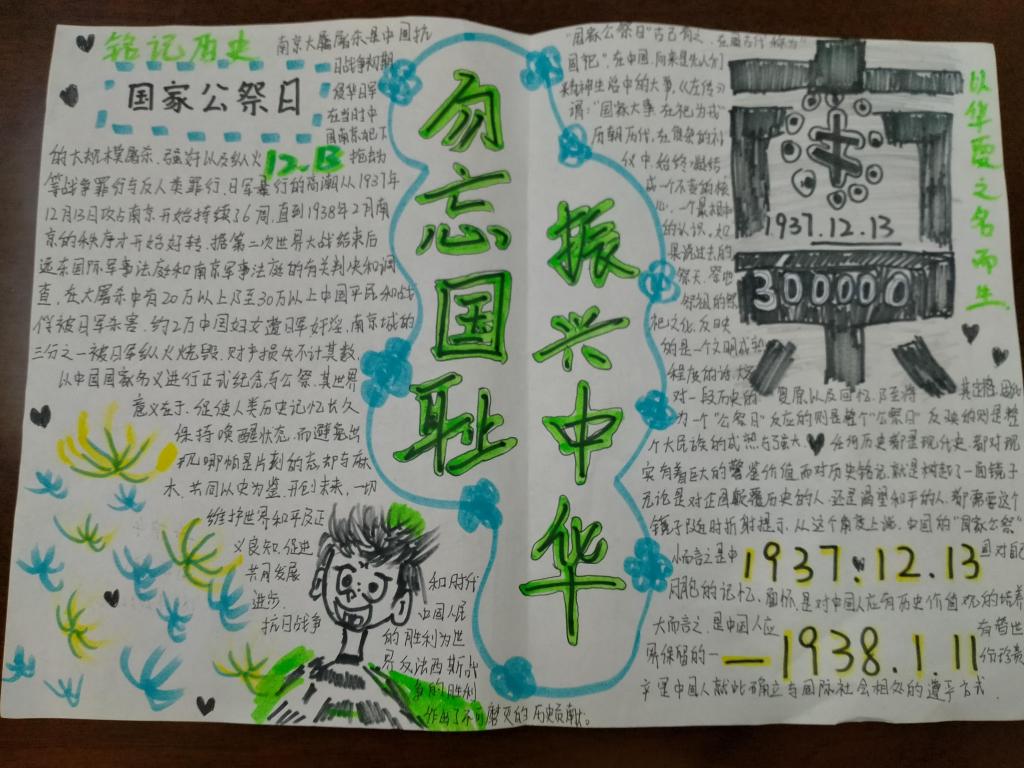 铭记历史
国家公祭日
南京大屠杀是中国抗
日战争初期
侵华日军
在当时中
国南京犯下
的大规模屠杀、强奸以及纵火
12.13
等战争罪行与反人类罪行,日军暴行的高潮从1937年
12月13日攻占南京开始持续了6周,直到1938年2月南
京的秩序才开始好转,据第二次世界大战结束后
远东国际军事法庭和南京军事法庭的有关判决和调
查,在大屠杀中有20万以上乃至30万以上中国平民和战
俘被日军杀害,约2万中国妇女遭日军奸淫,南京城的
三分之一被日军纵火烧毁,财产损失不计其数,
以中国国家名义进行正式纪念与公祭,其世界
意义在于,促使人类历史记忆长久
保持唤醒状态,而避免出
现哪怕是片刻的忘却与麻
木,共同以史为鉴,开创未来,一切
维护世界和平及正
义良知,促进
共同发展
和时代
进步.
中国人民
抗日战争
的胜利为世
界反法西斯战
争的胜利
作出了不可磨灭的历史贡献。
勿忘国耻
振兴中华
"国家公祭日"古已有之,在国古代称为"
国祀",在中国,向来是先人们
精神生活中的大事,《左传》
谓:"国家大事,在祀与戎"
历朝历代,在复杂的礼
仪中,始终凝结
成一个不变的核
心,一个最根本
的认识,如
果说过去的
祭天、祭地
祭祖的祭
祀文化,反映
的是一个文明成熟
程度的话,大家
对一段历史的
复原以及回忆,乃至将
其定格,固化
为一个"公祭日"反应的则是整个"公祭日"反映的则是整
个大民族的成熟与强大
任何历史都是现代史,都对现
实有着巨大的警鉴价值,而对历史铭记,就是树起了一面镜子
无论是对企图颠覆历史的人,还是渴望和平的人,都需要这个
镜子随时折射提示,从这个角度上说,中国的"国家公祭"
小而言之是中
1937.12.13
国对自己
同胞的记忆、缅怀,是对中国人应有历史价值观的培养
大而言之,是中国人应
有替世
界保留的一
—1938.1.11
份珍贵
中国人就此确立与国际社会相处的遵平方式
以华夏之名而生
1937.12.13
300000